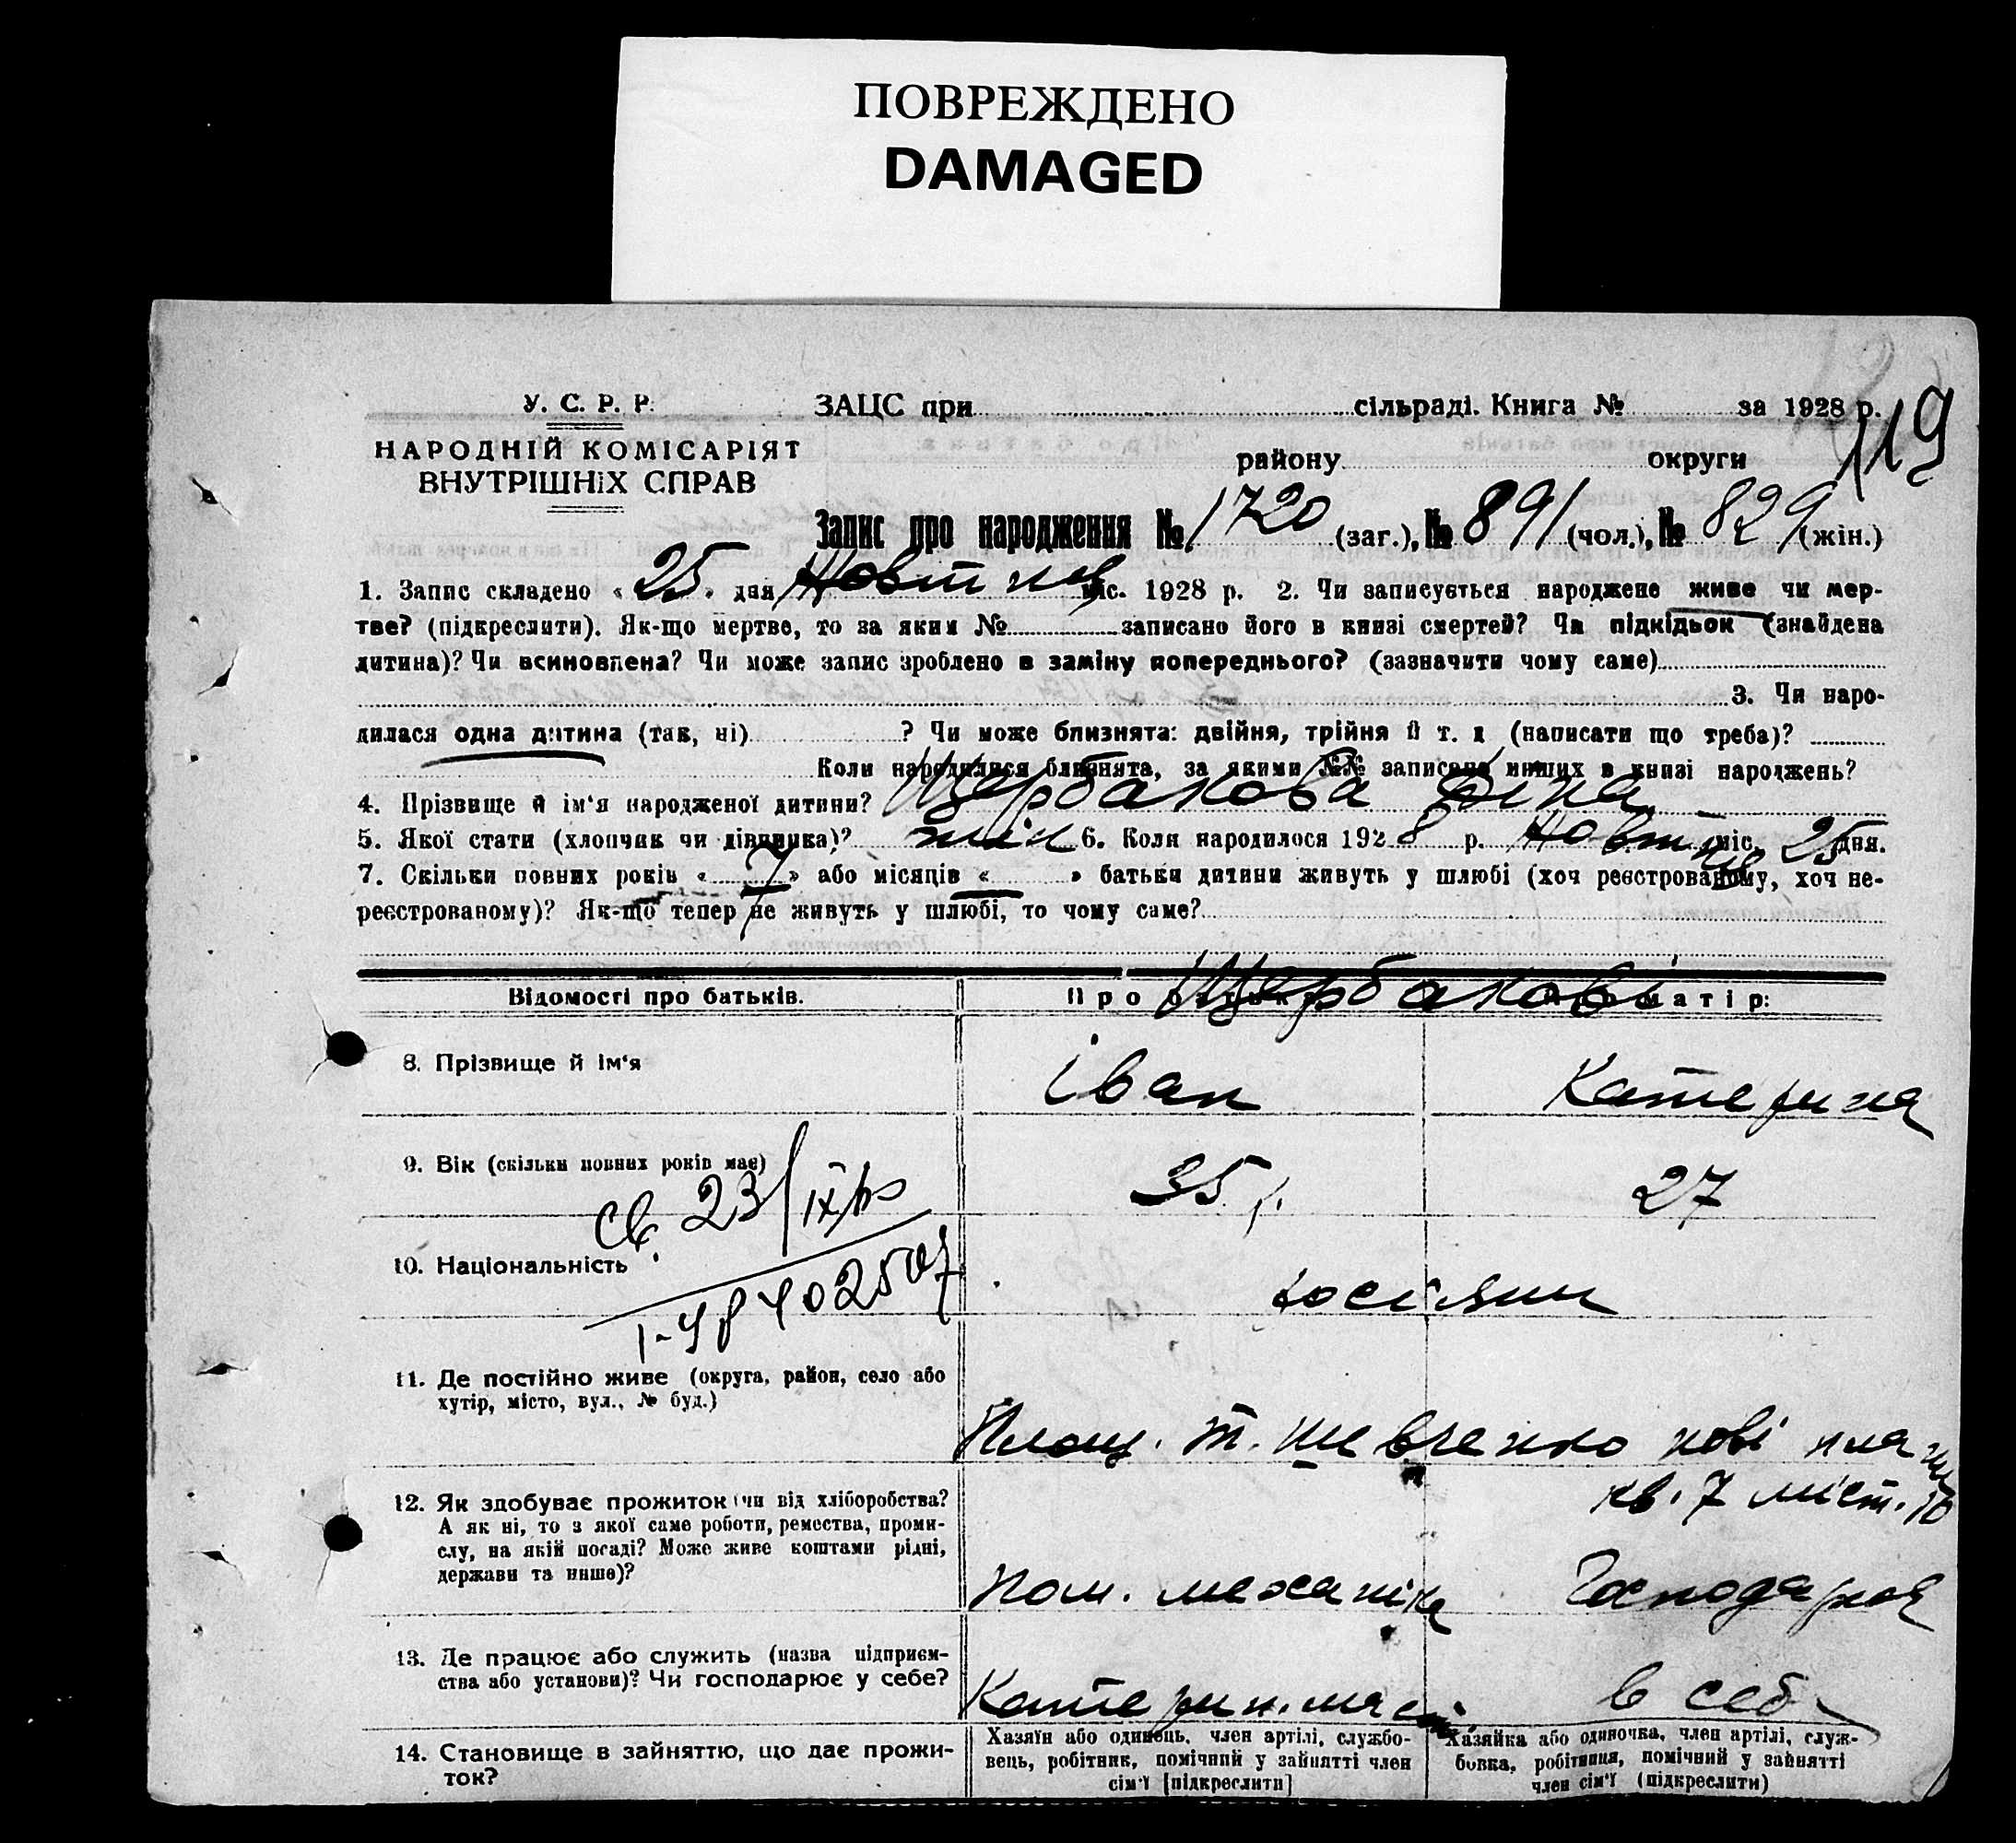 ПОВРЕЖДЕНО
DAMAGED
У. С. Р. Р. ЗАЦС при сільраді. Книга № за 1928 р. 119
НАРОДНІЙ КОМІСАРІЯТ району округи
ВНУТРІШНІХ СПРАВ
Запис про народження № 1720 (заг.), № 891 (чол.), № 829 (жін.)
1. Запис складено « 25 » дня Жовтня міс. 1928 р. 2. Чи записується народжене живе чи мер-
тве? (підкреслити). Як-що мертве, то за яким № записано його в книзі смертей? Чи підкідьок (знайдена
дитина)? Чи всиновлена? Чи може запис зроблено в заміну попереднього? (зазначити чому саме)
3. Чи наро-
дилася одна дитина (так, ні) ? Чи може близнята: двійня, трійня й т. д (написати що треба)?
Коли народилися близнята, за якими №№ записано инших в книзі народжень?
4. Прізвище й ім‘я народженої дитини? Щербакова
5. Якої стати (хлопчик чи дівчинка)? жін 6. Коли народилося 1928 р. Жовтня міс. 25 дня.
7. Скільки повних років « 7 » або місяців « » батьки дитини живуть у шлюбі (хоч реєстрованому, хоч не-
реєстрованому)? Як-що тепер не живуть у шлюбі, то чому саме?
Щербакові
Відомості про батьків. Про батька Про матір:
8. Прізвище й ім‘я Іван Катерина
9. Вік (скільки повних років має) 35 р. 27
св. 23/IX
10. Національність росіяни
11. Де постійно живе (округа, район, село або
хутір, місто, вул., № буд.)
Площ. Т. Шевченко нові
кв. 7 міст. 10
12. Як здобуває прожиток (чи від хліборобства?
А як ні, то з якої саме роботи, ремества, проми-
слу, на якій посаді? Може живе коштами рідні,
держави та инше)?
пом. механіка Господарює
13. Де працює або служить (назва підприєм-
ства або установи)? Чи господарює у себе?
Катерин. в себе
14. Становище в зайняттю, що дає прожи-
ток?
Хазяїн або одинець, член артілі, службо-
вець, робітник, помічний у зайнятті член
сім‘ї [підкреслити]
Хазяйка або одиночка, член артілі, служ-
бовка, робітниця, помічний у зайнятті
член сім‘ї (підкреслити)